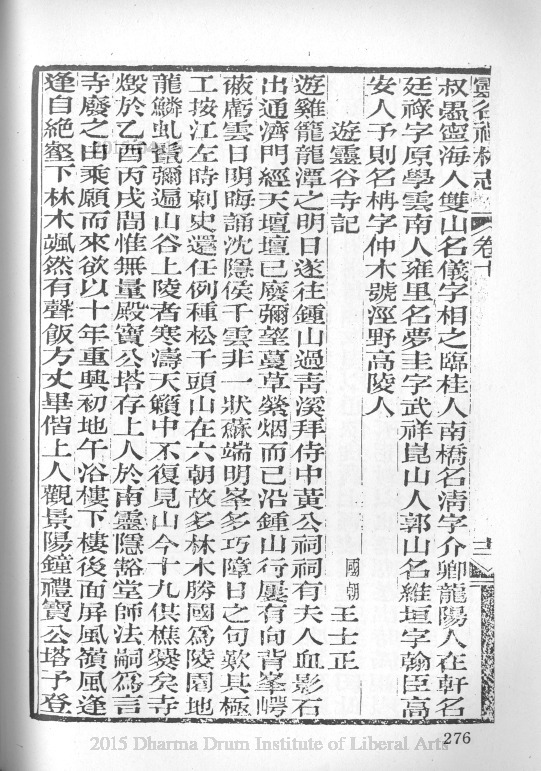 靈谷禪林志 卷十 十二
叔愚寧海人雙山名儀字相之臨桂人南橋名淸字介卿龍陽人在軒名
廷祿字原學雲南人雍里名夢圭字武祥崑山人郭山名維垣字翰臣高
安人予則名柟字仲木號涇野高陵人
遊靈谷寺記
國朝 王士正
遊雞籠龍潭之明日遂往鍾山過青溪拜侍中黃公祠祠有夫人血影石
出通濟門經天壇壇已廢彌望蔓草縈烟而已沿鍾山行屢有向背峯崿
蔽虧雲日明晦誦沈隱侯千雲非一狀蘇端明峯多巧障日之句歎其極
工按江左時刺史還任例種松千頭山在六朝故多林木勝國爲陵園地
龍鱗虬鬣彌遍山谷上陵者寒濤天籟中不復見山今十九供樵爨矣寺
燬於乙酉丙戌間惟無量殿寶公塔存上人於南靈隱豁堂師法嗣爲言
寺廢之由乘願而來欲以十年重興初地午浴樓下樓後面屏風嶺風逢
逢自絶壑下林木颯然有聲飯方丈畢偕上人觀景陽鐘禮寶公塔予登
2015 Dharma Drum Institute of Liberal Arts
276